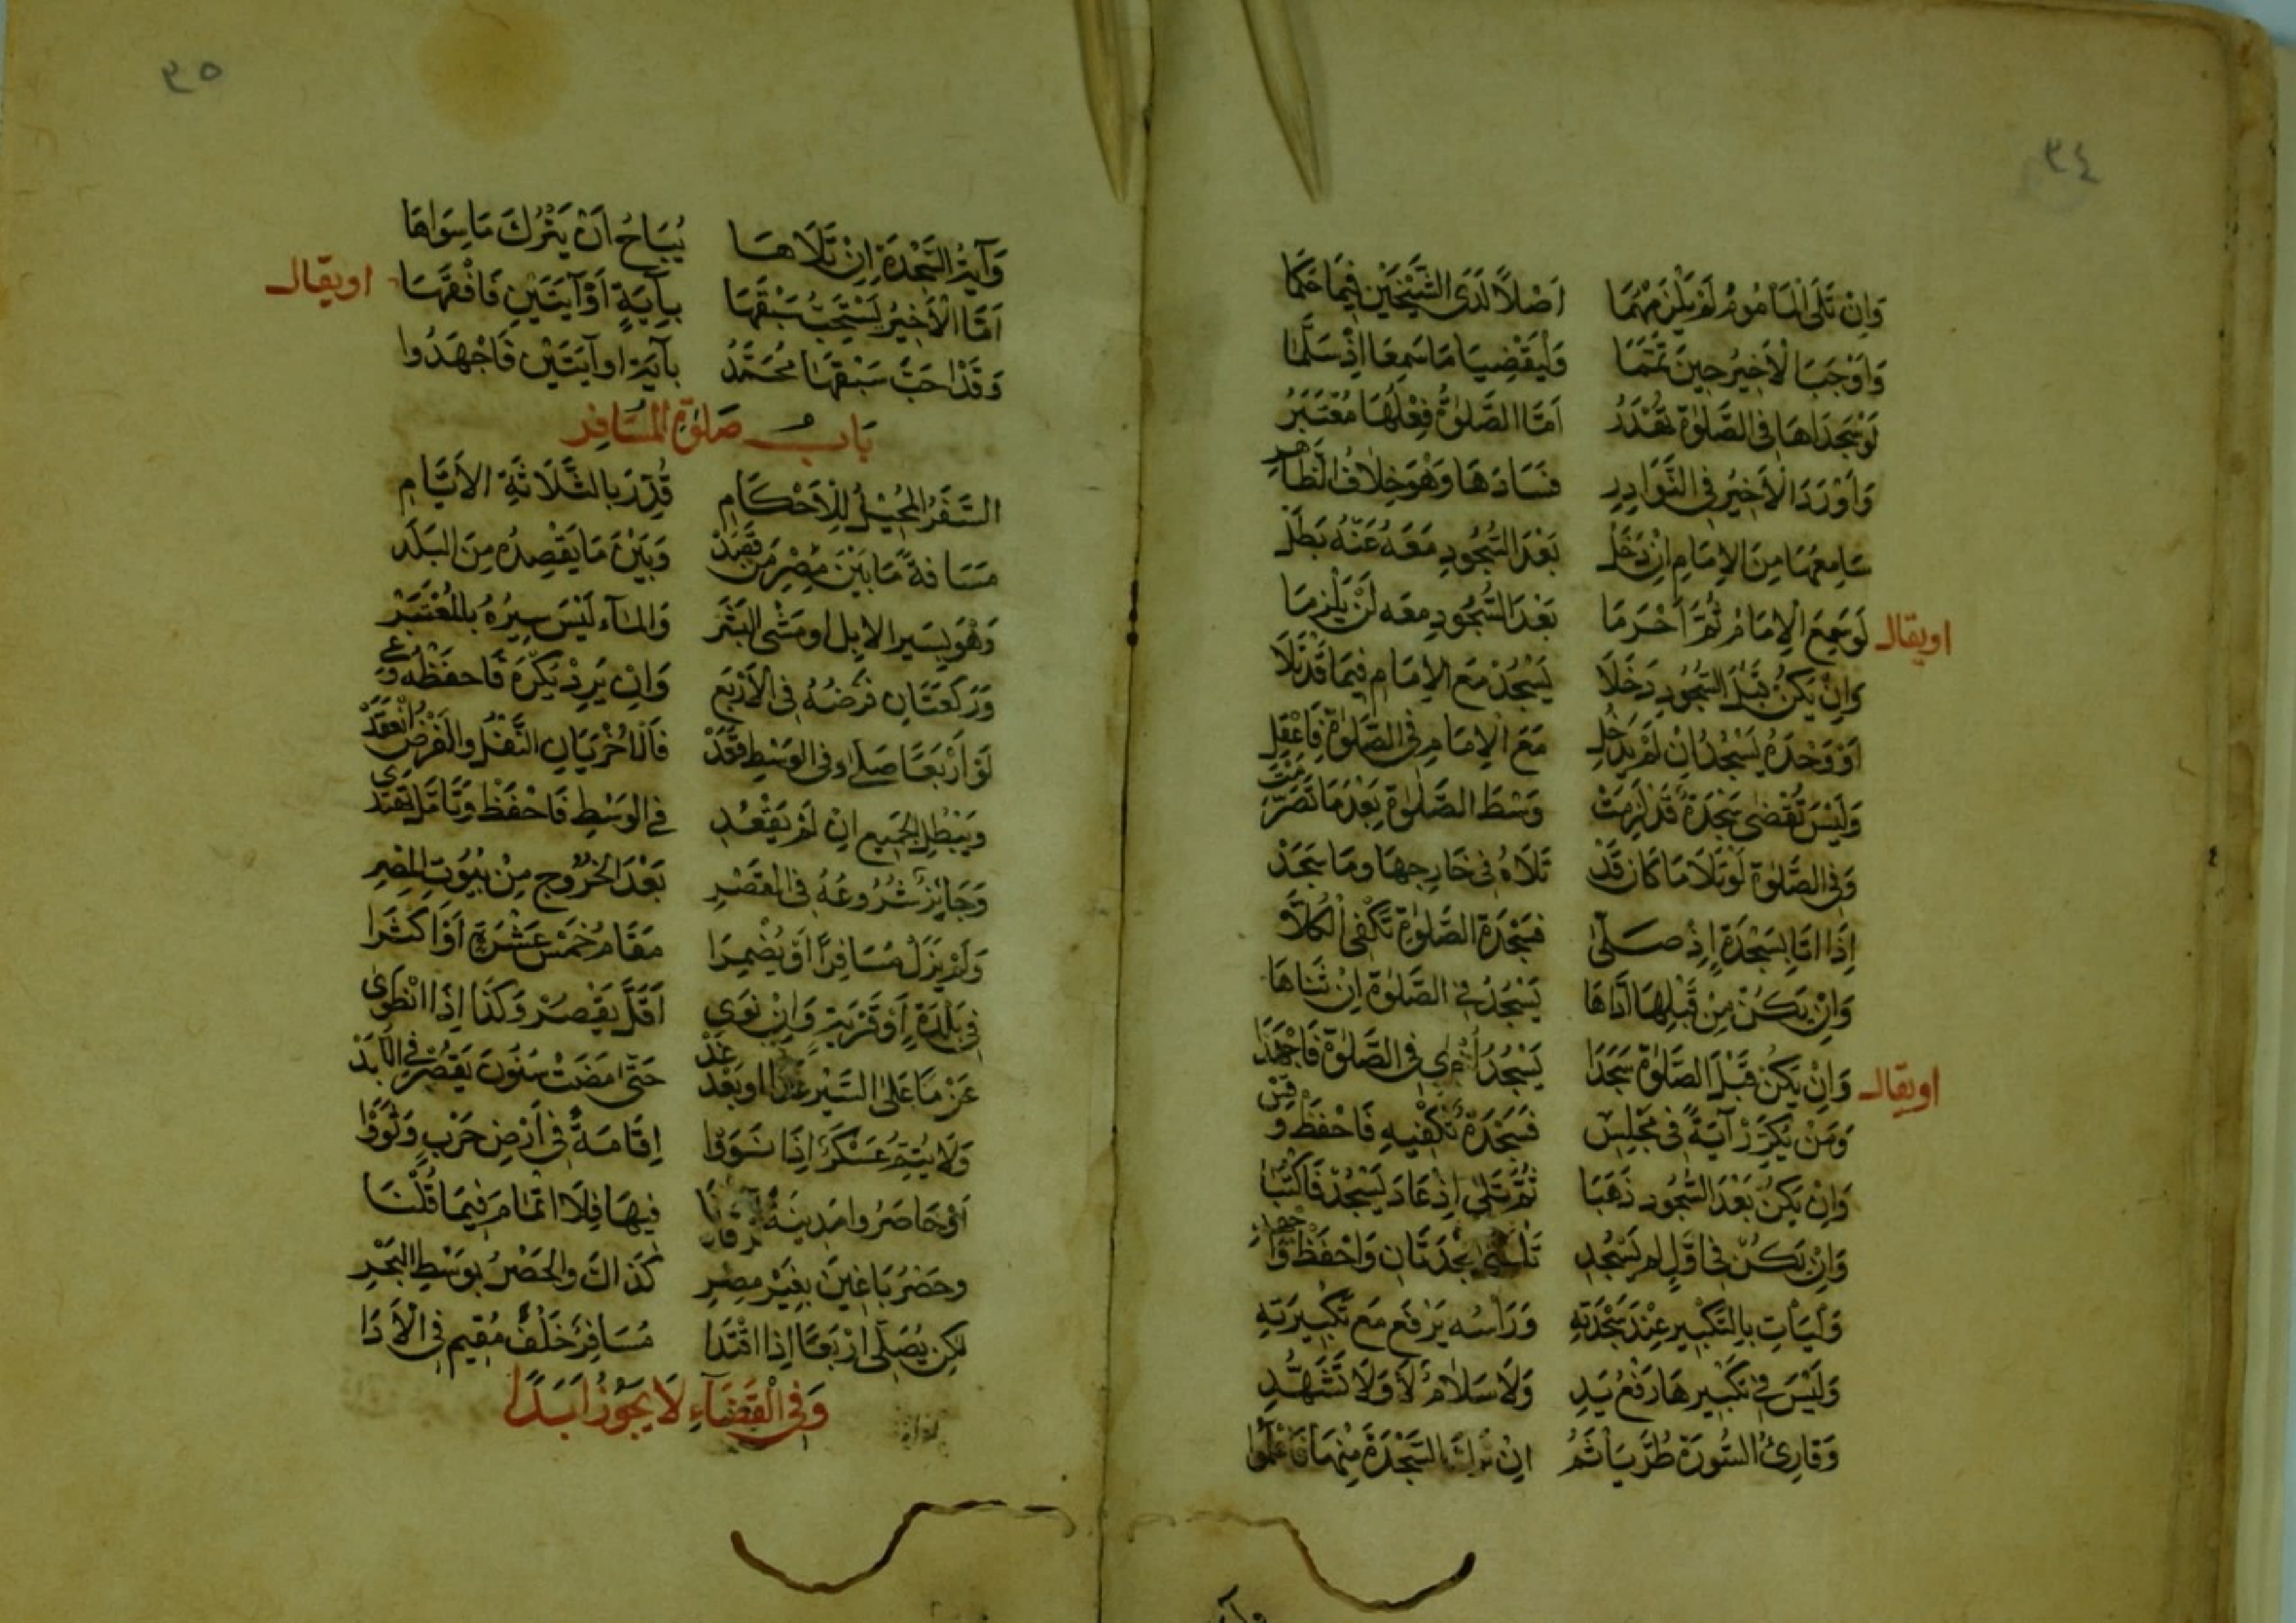 ٣٤
وَإِنْ تَلَى الْمَأْمُومُ لَمْ يَلْزَمْهُمَا اَصْلاً لَدَى الشَّيْخَيْنِ فِيمَا حَكَمَا
وَاَوْجَبَ الْأَخِيرُ حِينَ تَمَّمَا وَلْيَقْضِيَا مَا سَمِعَا اِذْ سَلَّمَا
لَوْ سَجَدَاهَا فِى الصَّلٰوةِ تُهْدَرُ اَمَّا الصَّلٰوةُ فِعْلُهَا مُعْتَبَرُ
وَاَوْرَدَ الْأَخِيرُ فِى النَّوَادِرِ فَسَادَهَا وَهْوَ خِلَافُ الظَّاهِرِ
سَامِعُهَا مِنَ الْإِمَامِ اِنْ دَخَلْ بَعْدَ السُّجُودِ مَعَهُ عَنْهُ بَطَلْ
اويقال لَوْ سَمِعَ الْإِمَامْ ثُمَّ اَحْرَمَا بَعْدَ السُّجُودِ مَعَه لَنْ يَلْزَمَا
وَاِنْ يَكُنْ قَبْلَ السُّجُودِ دَخَلَا يَسْجُدْ مَعَ الْإِمَامِ فِيمَا قَدْ تَلَا
اَوْ وَحْدَهُ يَسْجُدُ اِنْ لَمْ يَدْخُلِ مَعَ الْإِمَامِ فِى الصَّلٰوةِ فَاعْقِلِ
وَلَيْسَ تُقْضٰى سَجْدَةٌ قَدْ لَزِمَتْ وَسْطَ الصَّلٰوةِ بَعْدَ مَا تَصَرَّمَتْ
وَفِى الصَّلٰوةِ لَوْ تَلَا مَا كَانَ قَدْ تَلَاهُ فِى خَارِجِهَا وَمَا سَجَدْ
اِذَا اَتَا بِسَجْدَةٍ اِذْ صَلَّىٰ فَسَجْدَةُ الصَّلٰوةِ تَكْفِى الْكُلَّا
وَاِنْ يَكُنْ مِنْ قَبْلِهَا اَدَّاهَا يَسْجُدُ فِى الصَّلٰوةِ اِنْ ثَنَاهَا
اويقال وَاِنْ يَكُنْ قَبْلَ الصَّلٰوةِ سَجَدَا يَسْجُدُ فِى الصَّلٰوةِ فَاجْهَدَا
وَمَنْ يُكَرِّرْ آيَةً فِى مَجْلِسِ فَسَجْدَةٌ تَكْفِيهِ فَاحْفَظْ وَقِسِ
وَاِنْ يَكُنْ بَعْدَ السُّجُودِ ذَهَبَا ثُمَّ تَلٰى اِذْ عَادَ يَسْجُدْ فَاكْتُبَا
وَاِنْ يَكُنْ فِى اوَّلٍ لَم يَسْجُدِ سَجْدَتَانِ وَاحْفَظْ وَاجْهَدِ
وَلْيَأْتِ بِالتَّكْبِيرِ عِنْدَ سَجْدَتِهِ وَرَأْسُه يَرْفَع مَعْ تَكْبِيرَتِهِ
وَلَيْسَ فِى تَكْبِيرِهَا رَفْعُ يَدِ وَلَا سَلَامٌ لَا وَلَا تَشَهُّدِ
وَقَارِئُ السُّورَةِ طُرًّا يَأْثَمُ اِنْ تَرَكَ السَّجْدَةَ مِنْهَا فَاعْلَمُوا
٣٥
وَآيَةُ السَّجْدَةِ اِنْ تَلَاهَا يُبَاحُ اَنْ يَتْرُكَ مَا سِوَاهَا
اَمَّا الْأَخِيرُ يَسْتَحِبُّ سَبْقَهَا بِآيَةٍ اَوْ آيَتَيْنِ فَافْقَهَا اويقال
وَقَدْ اَحَبَّ سَبْقَهَا مُحَمَّدُ بآيَةٍ او آيَتَيْنِ فَاجْهَدُوا
بَابُ صَلٰوةِ الْمُسَافِرِ
السَّفَرُ الْمُحِيْلُ لِلْأَحْكَامِ قُدِّرَ بالثَّلَاثَةِ الأَيَّامِ
مَسَافَةً مَا بَيْنَ مِصْرِ مَنْ قَصَدْ وَبَيْنَ مَا يَقْصِدُه مِنَ البَلَدْ
وَهْوَ بِسَيرِ الإبِلِ او مَشْىِ البَشَرْ وَالْمَآءِ لَيْسَ سِيرُهُ بالمُعْتَبَرْ
وَرَكْعَتَانِ فَرْضُهُ فِى الأَرْبَعِ وَاِنْ يَزِدْ يُكْرَهْ فَاحفَظْهُ وَعِ
لَوْ اَرْبَعًا صَلّٰى وفى الوَسْطِ قَعَدْ فَالْاُخْرَيَانِ النَّفْلُ والْفَرْضُ انْعَقَدْ
وَيَبْطُلُ الجَمِيع اِنْ لَمْ يَقْعُدِ فى الوَسْطِ فَاحْفَظْ وَتَأَمَّلْ تَهْتَدِى
وَجَايِزٌ شُرُوعُهُ فِى القَصْرِ بَعْدَ الخُرُوجِ مِنْ بُيُوتِ المِصْرِ
وَلَمْ يَزَلْ مُسَافِرًا اَوْ يُضْمِرَا مَقَامَ خَمْسَ عَشْرَةٍ اَوْ اَكْثَرَا
فِى بَلْدَةٍ اَوْ قَرْيَةٍ وَاِنْ نَوٰى اَقَلَّ يَقْصُرْ وَكَذَا اِذَا انْطَوٰى
عَزْمًا عَلَى السَّيْرِ غَدًا او بَعْدَ غَدْ حَتّٰى مَضَتْ سُنُونَ يَقْصُرْ فى الْأَبَدْ
وَلَا يُتِمُّ عَسْكَرٌ اِذَا نَوَوْا اِقَامَةً فِى اَرْضِ حَرْبٍ وَثَوَوْا
اَوْ حَاصَرُوا مَدِينَةً فِيهَا فَلَا اتْمَامَ فِيمَا قُلْنَا
وحَصْرُ بَاغِينَ بِغَيْرِ مِصْرِ كَذَاكَ والحَصْرُ بِوَسْطِ البَحْرِ
لكِن يُصَلِّى اَرْبَعًا اِذَا اقْتَدَا مُسَافِرٌ خَلْفَ مُقِيمٍ فِى الْأَدَا
وَفِى الْقَضَآءِ لَا يَجُوْزُ اَبَدًا